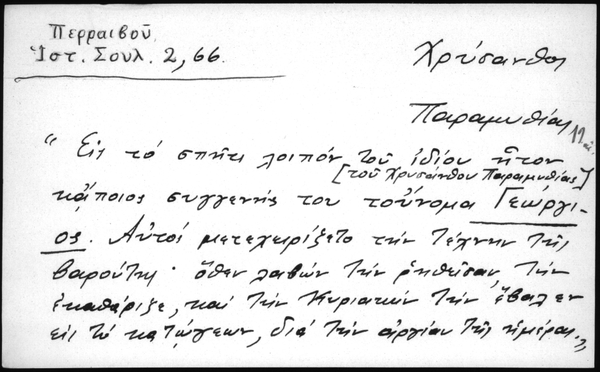 Περραιβοῦ
Ἱστ. Σουλ. 2, 66.
Χρύσανθος
Παραμυθίας
" Εἰς τό σπῆτι λοιπόν τοῦ ἰδίου ἦτον
[τοῦ Χρυσάνθου Παραμυθίας]
κᾴποιος συγγενής του τοὔνομα Γεώργι-
ος. Αὐτός μετεχειρίζετο τήν τέχνην τῆς
βαρούτης· ὅθεν λαβών τήν ῥηθεῖσαν τήν
ἐκαθάριζε, καί τήν Κυριακήν τήν ἔβαλεν
εἰς τό κατώγεων, διά τήν ἀργίαν τῆς ἡμέρας."